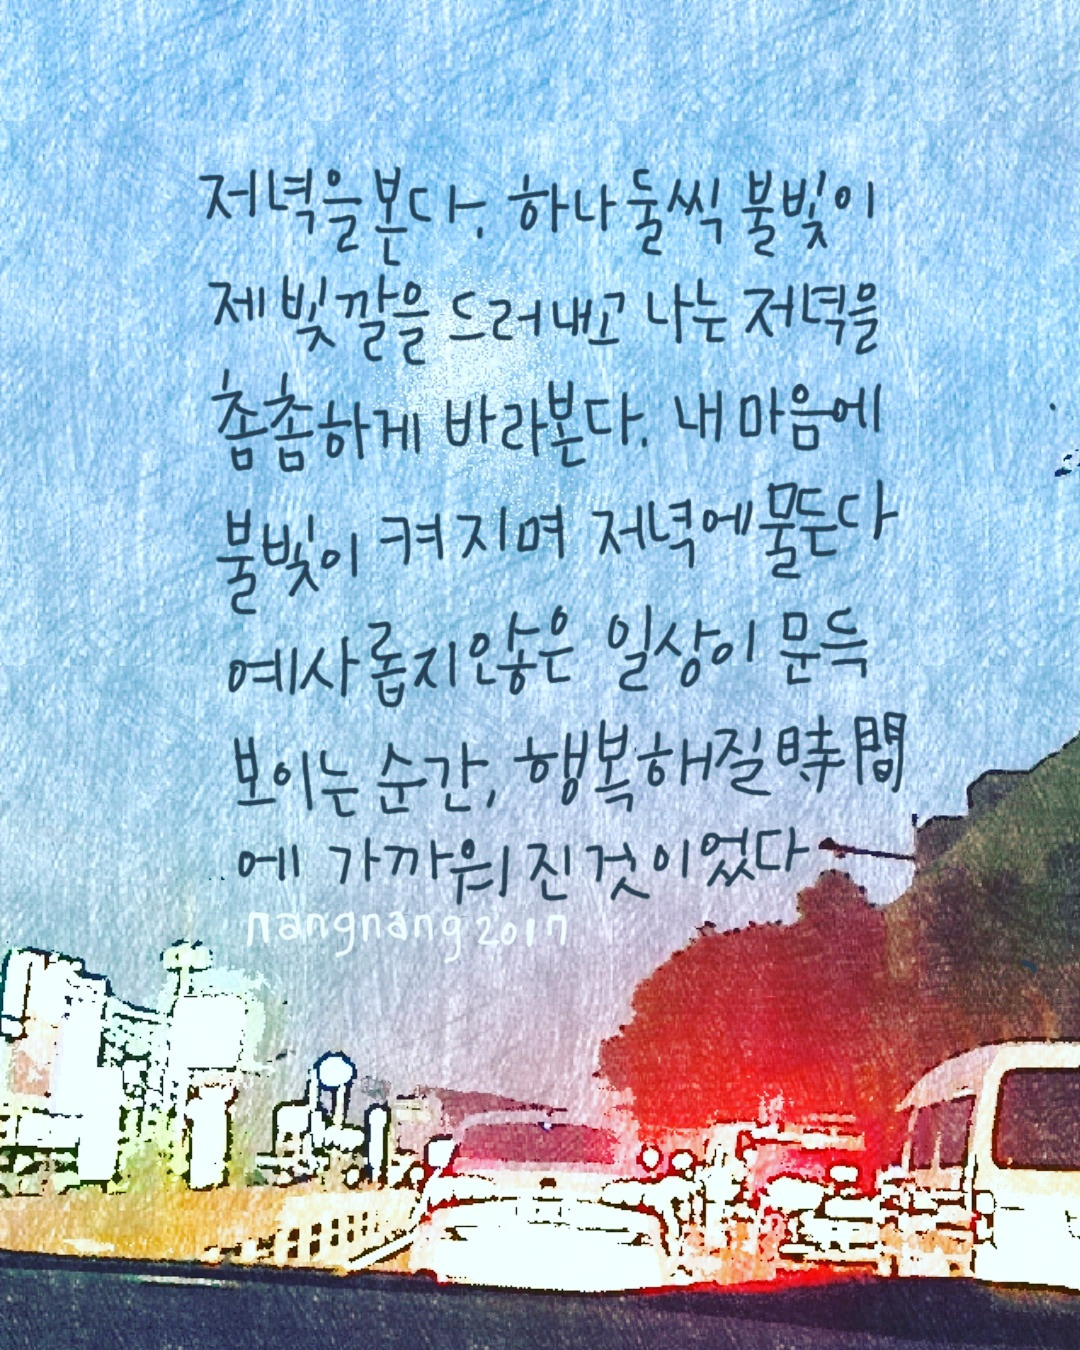 저녁을본다. 하나둘씩 불빛이
제빛깔을 드러내고 나는 저녁을
촘촘하게 바라본다. 내 마음에
불빛이 켜지며 저녁에물든다
예사롭지않은 일상이 문득
보이는 순간, 행복해질時間
에 가까워진것이었다
nangnang 2017